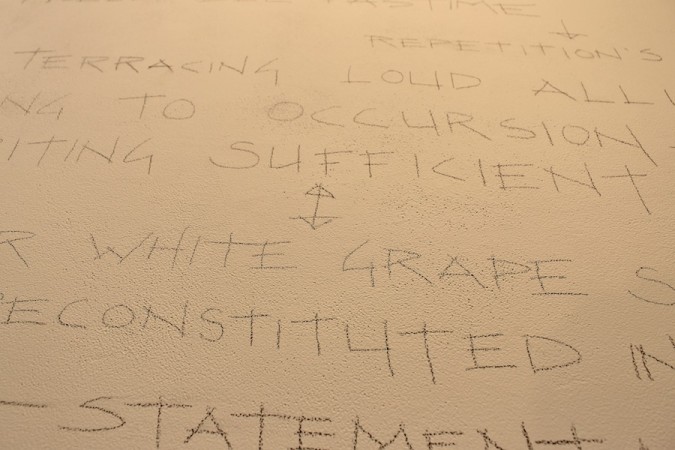 PASTIME
REPETITION'S
TERRACING LOUD ALL
NG TO OCCURSION
ITING SUFFICIENT
R WHITE GRAPE S
ECONSTITUTED IN
- STATEMENT